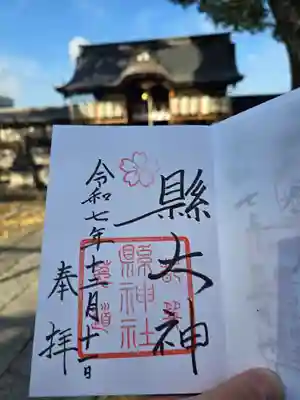 縣大神
縣神社
莵道
令和七年十二月十一日
奉拝